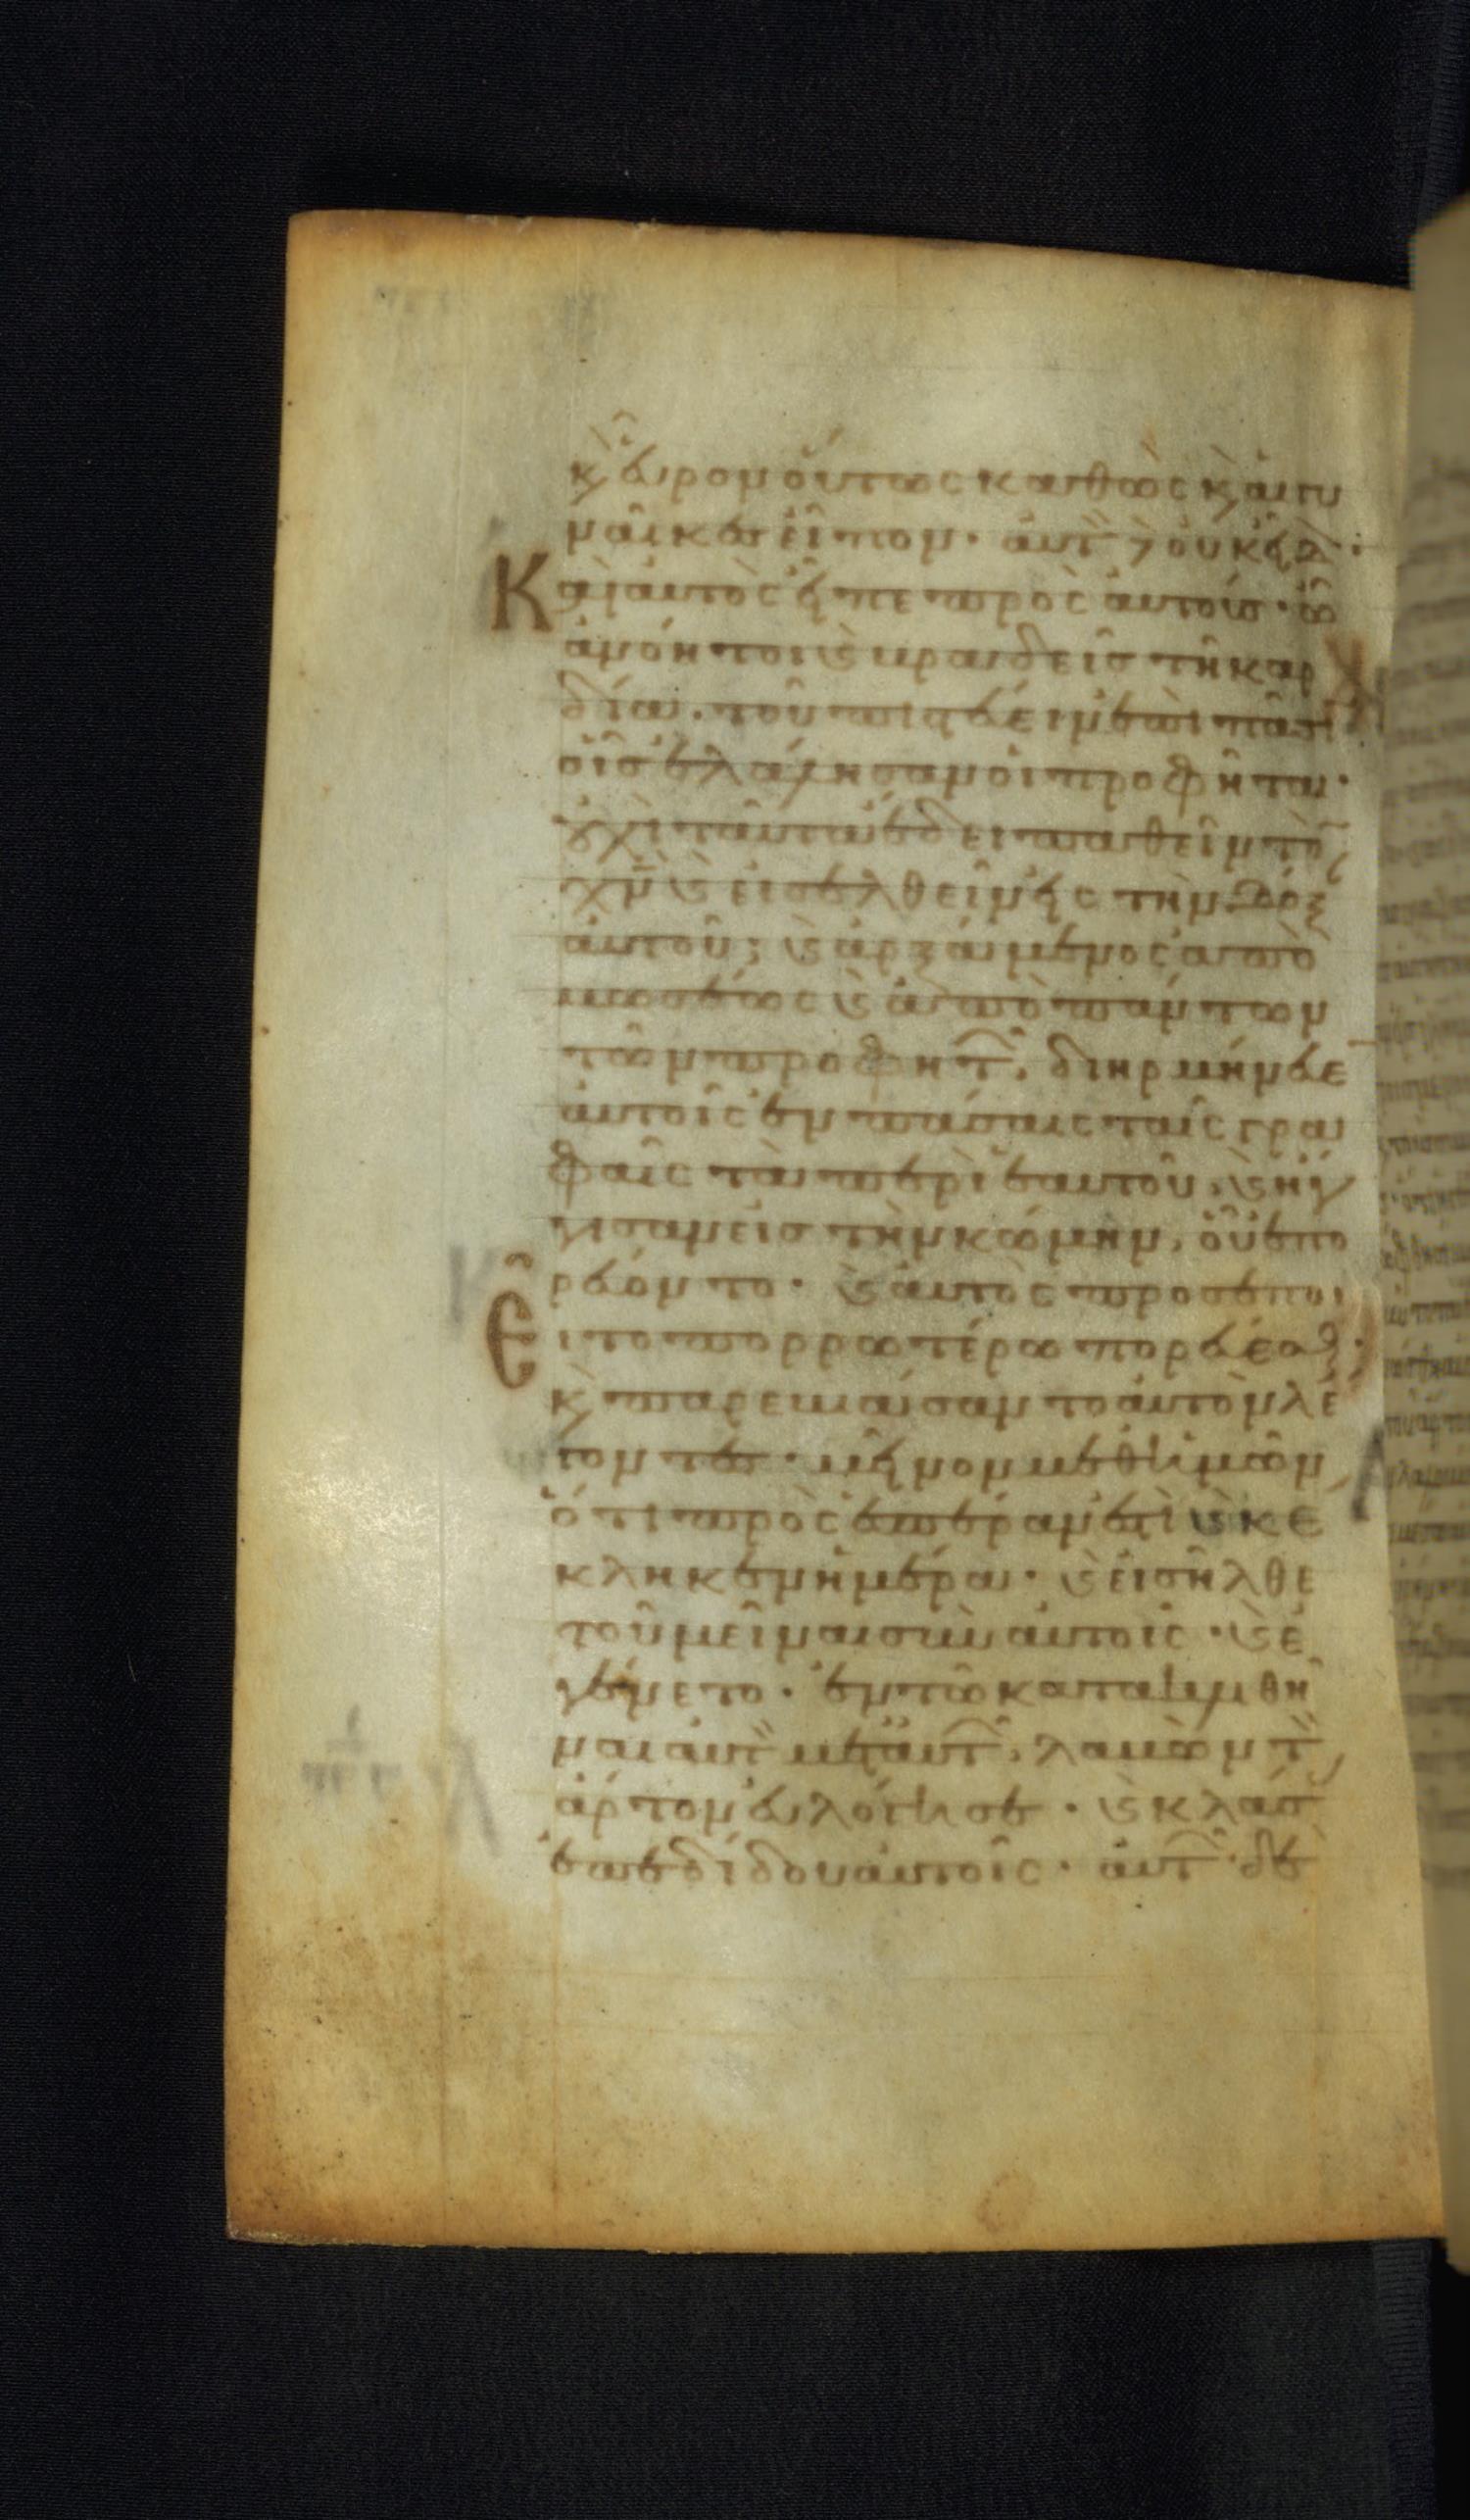 κ εὗρον οὕτως καθὼς κ αἱ γυ
ναῖκες εἶπον· αὐτ δὲ οὐκ εἶδ·
Καὶ αὐτὸς εἶπε πρὸς αὐτούς· ὦ
ἀνόητοι καὶ βραδεῖς τῆ καρ
δία· τοῦ πιστεύειν ἐπὶ πᾶσι
οἷς ἐλάλησαν οἱ προφῆται·
οὐχὶ ταῦτα ἔδει παθεῖν τὸ
χν καὶ εἰσελθεῖν εἰς τὴν δόξ
αὐτοῦ; καὶ ἀρξάμενος ἀπὸ
μωσέως καὶ ἀπὸ πάντων
τῶν προφητ, διηρμήνευε
αὐτοῖς ἐν πάσαις ταῖς γρα
φαῖς τὰ περὶ ἑαυτοῦ, καὶ ἤγ
γισαν εἰς τὴν κώμην, οὗ ἐπο
ρεύοντο· καὶ αὐτὸς προσεποι
εῖτο πορρωτέρω πορεύεσθ·
κ παρεβιάσαντο αὐτὸν λέ
γοντες· μεῖνον μεθ ἡμῶν
ὅτι πρὸς ἑσπέραν ἐστὶ καὶ κέ
κληκεν ἡ μέρα· καὶ εἰσῆλθε
τοῦ μεῖναι σὺν αὐτοῖς· καὶ ἐ
γένετο· ἐν τῶ κατακλιθῆ
ναι αὐτ μετ αὐτ, λαβὼν τ
ἄρτον εὐλόγησε· καὶ κλάσ
ἐπεδίδου αὐτοῖς· αὐτ δε